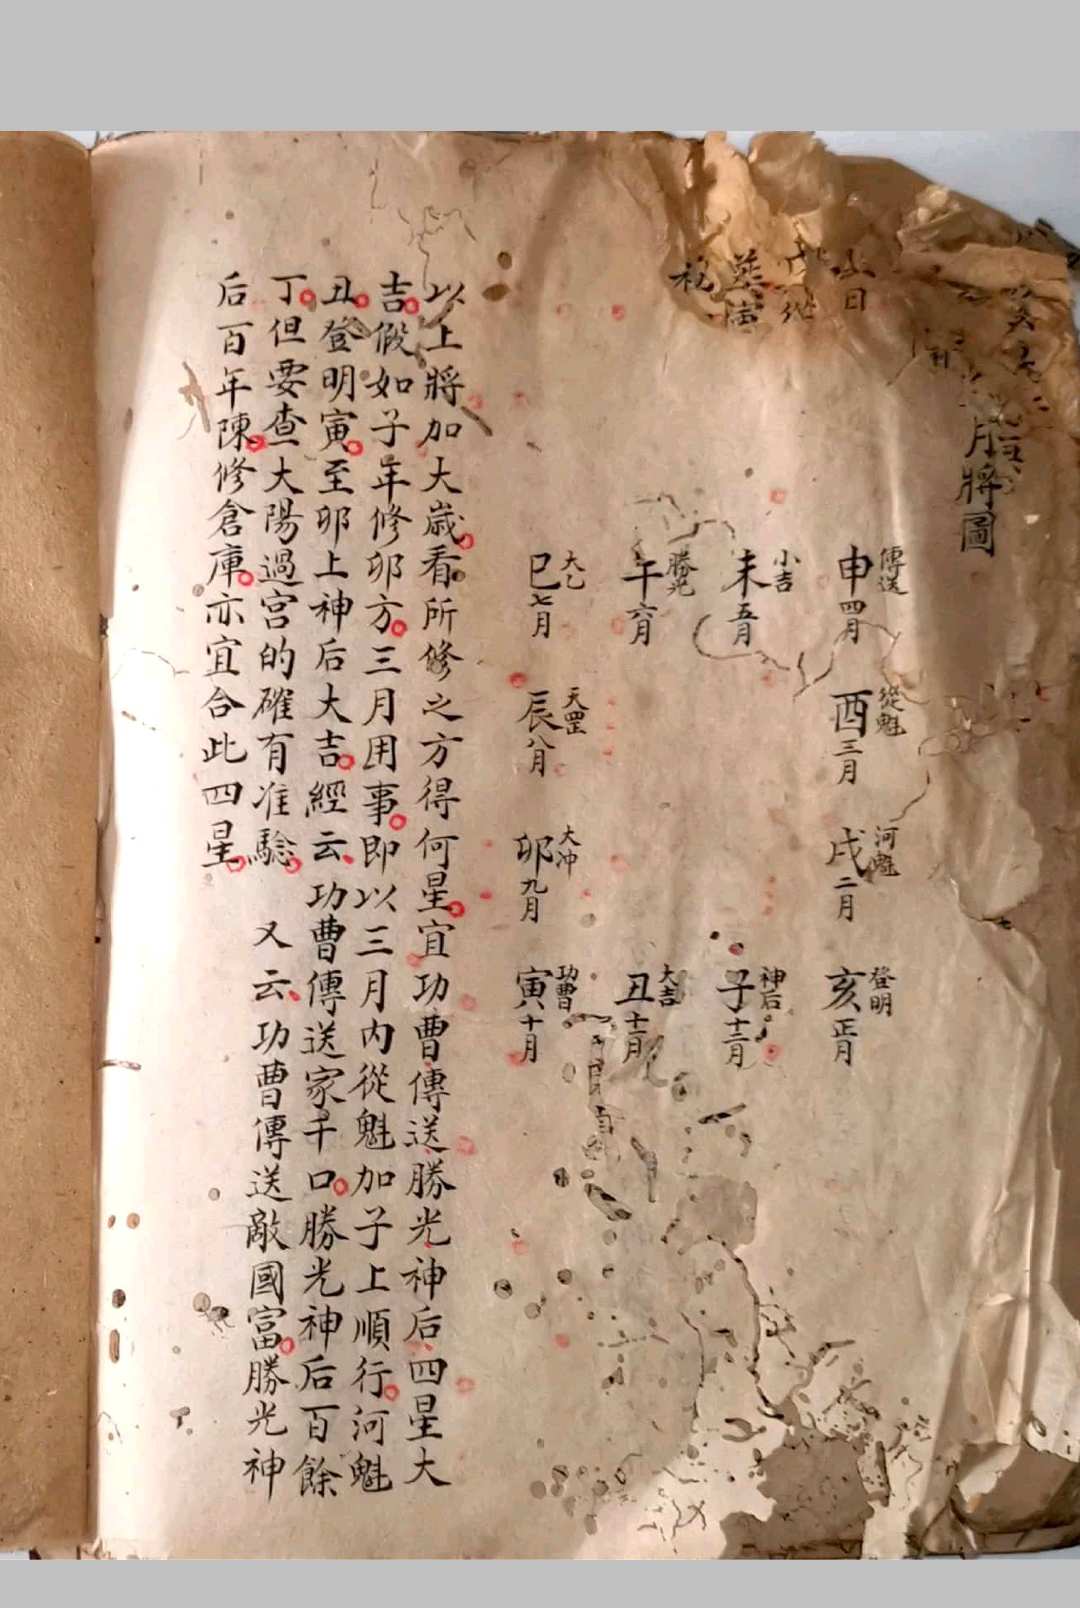 月將圖
傳送
申四月
小吉
未五月
勝光
午六月
大乙
巳七月
從魁
酉三月
天罡
辰八月
河魁
戌二月
大冲
卯九月
登明
亥正月
神后
子十二月
大吉
丑十一月
功曹
寅十月
以上將加大歲看所修之方得何星宜功曹傳送勝光神后四星大
吉假如子年修卯方三月用事即以三月內從魁加子上順行河魁
丑登明寅至卯上神后大吉經云功曹傳送家千口勝光神后百餘
丁但要查大陽過宮的確有准驗 又云功曹傳送敵國富勝光神
后百年陳修倉庫亦宜合此四星